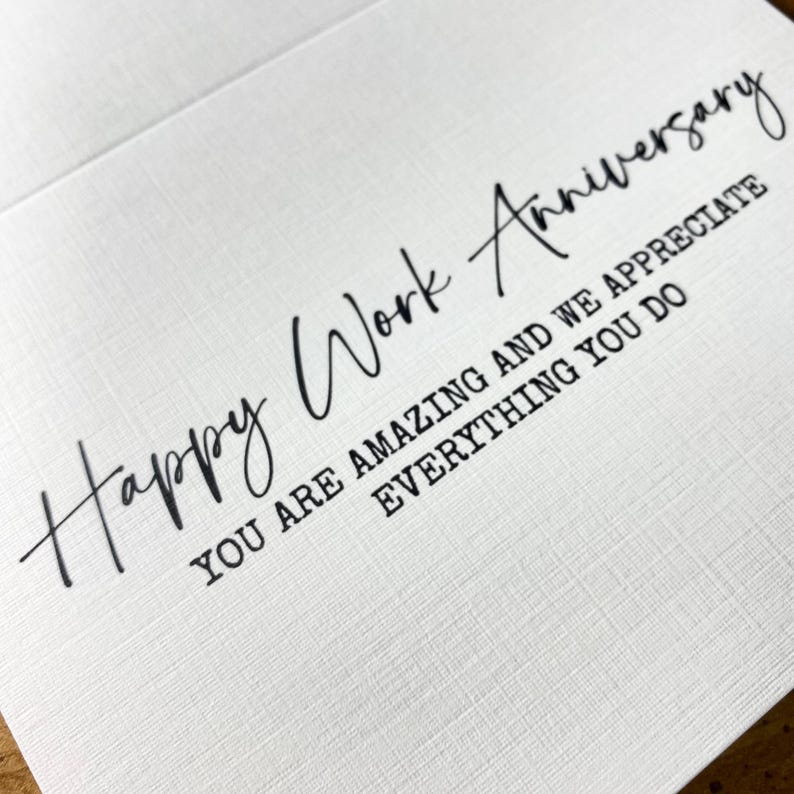 Happy Work Anniversary
YOU ARE AMAZING AND WE APPRECIATE
EVERYTHING YOU DO